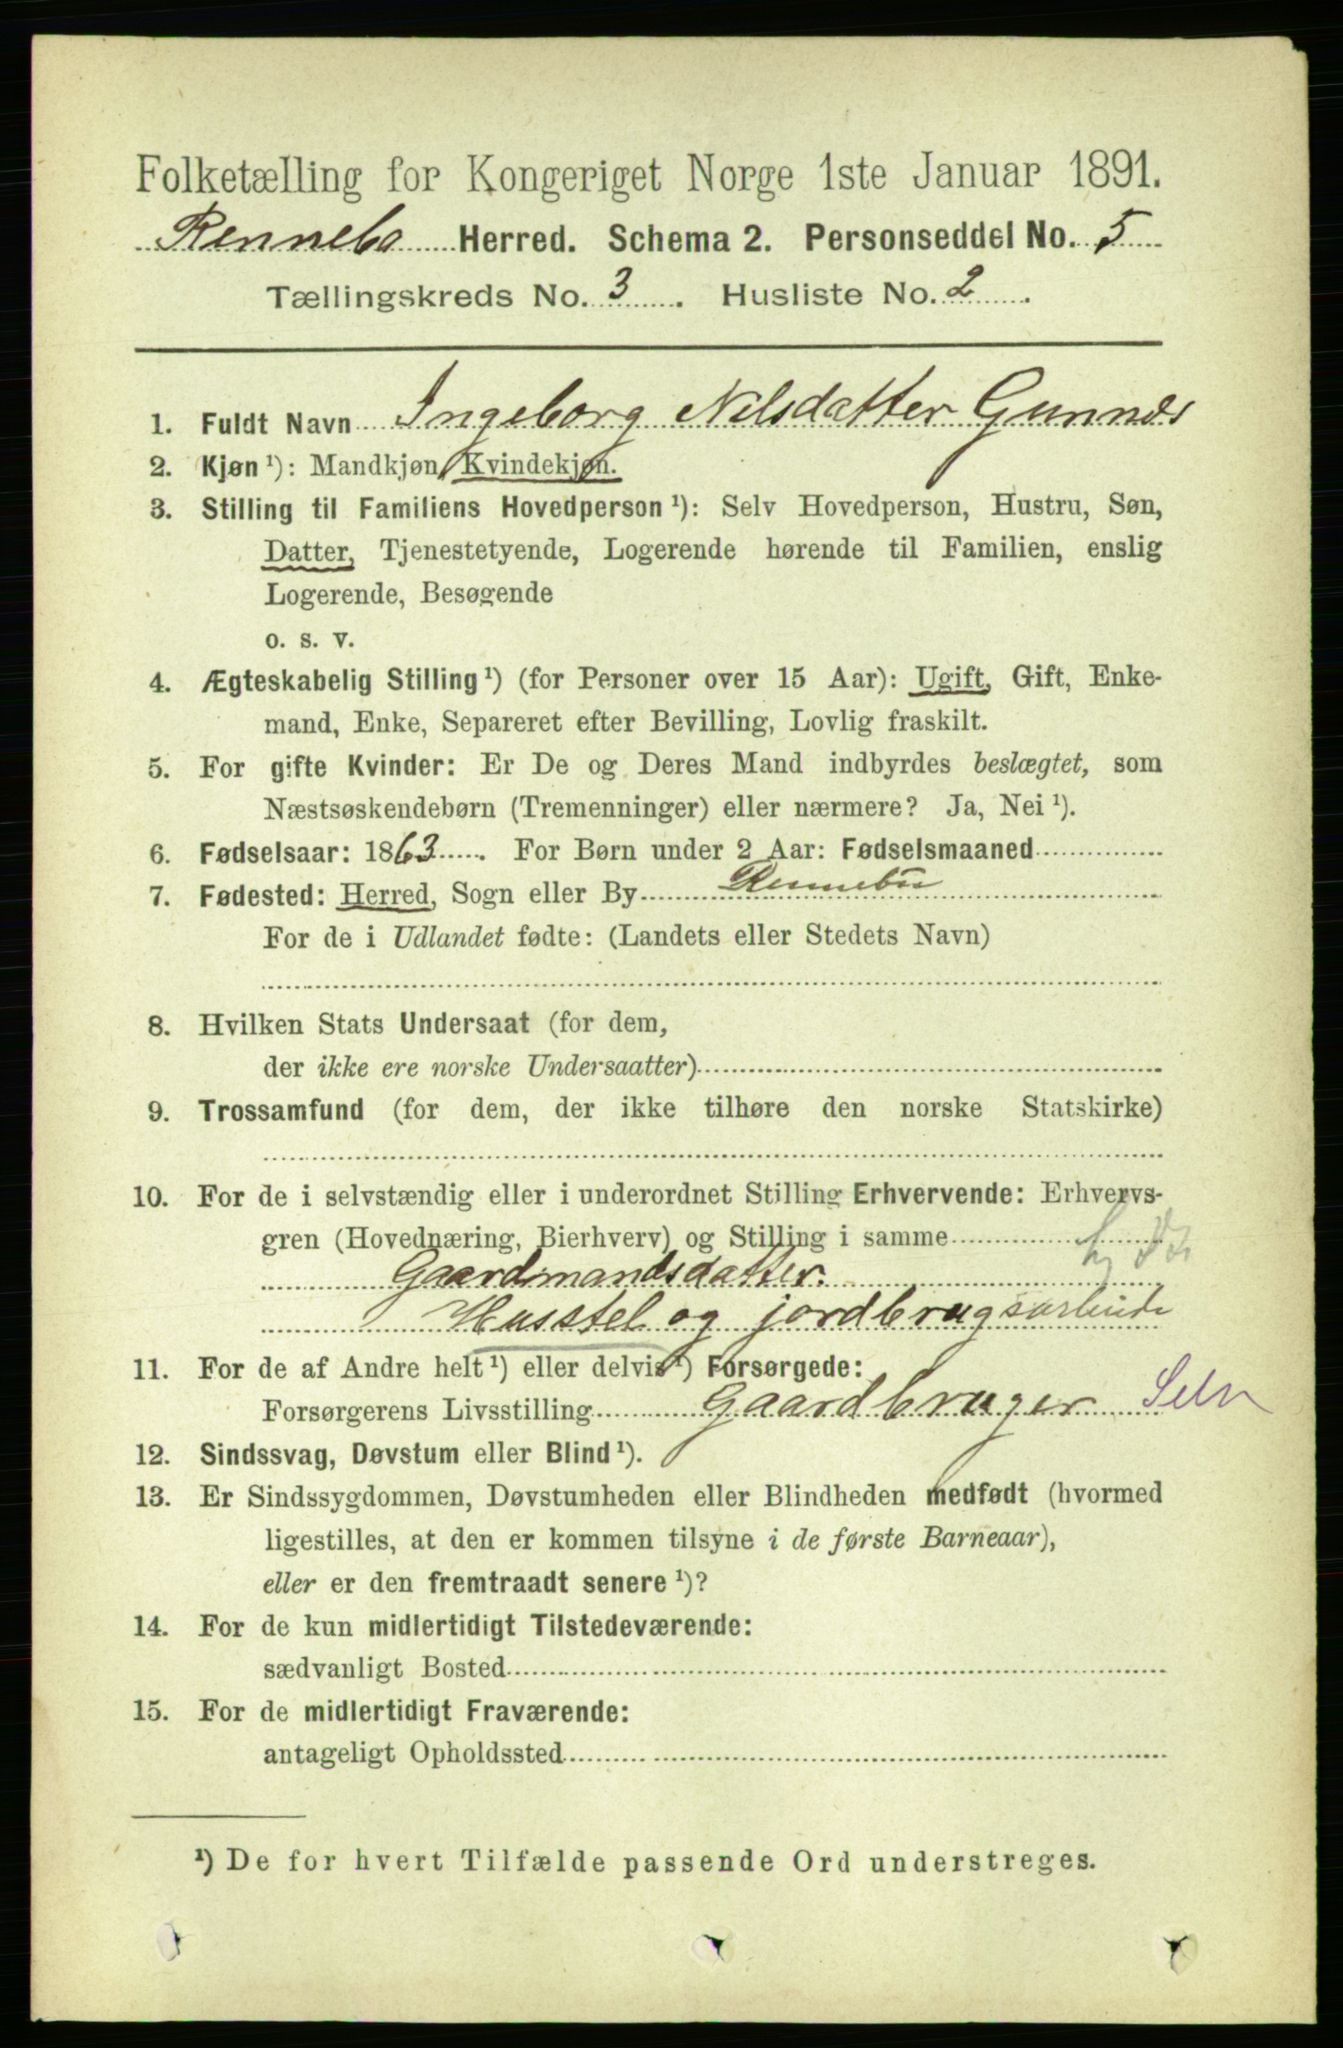 Folketælling for Kongeriget Norge 1ste Januar 1891.
Rennebo Herred. Schema 2. Personseddel No. 5
Tællingskreds No. 3. Husliste No. 2.
1. Fuldt Navn Ingeborg Nilsdatter Gunnes
2. Kjøn ¹): Mandkjøn, Kvindekjøn.
3. Stilling til Familiens Hovedperson ¹): Selv Hovedperson, Hustru, Søn,
Datter, Tjenestetyende, Logerende hørende til Familien, enslig
Logerende, Besøgende
o. s. v.
4. Ægteskabelig Stilling ¹) (for Personer over 15 Aar): Ugift, Gift, Enke-
mand, Enke, Separeret efter Bevilling, Lovlig fraskilt.
5. For gifte Kvinder: Er De og Deres Mand indbyrdes beslægtet, som
Næstsøskendebørn (Tremenninger) eller nærmere? Ja, Nei ¹).
6. Fødselsaar: 1863. For Børn under 2 Aar: Fødselsmaaned
7. Fødested: Herred, Sogn eller By Rennebu
For de i Udlandet fødte: (Landets eller Stedets Navn)
8. Hvilken Stats Undersaat (for dem,
der ikke ere norske Undersaatter)
9. Trossamfund (for dem, der ikke tilhøre den norske Statskirke)
10. For de i selvstændig eller i underordnet Stilling Erhvervende: Erhvervs-
gren (Hovednæring, Bierhverv) og Stilling i samme
Gaardmandsdatter.
Husstel og jordbrugsarbeide
11. For de af Andre helt ¹) eller delvis ¹) Forsørgede:
Forsørgerens Livsstilling Gaardbruger Selv
12. Sindssvag, Døvstum eller Blind ¹).
13. Er Sindssygdommen, Døvstumheden eller Blindheden medfødt (hvormed
ligestilles, at den er kommen tilsyne i de første Barneaar),
eller er den fremtraadt senere ¹)?
14. For de kun midlertidigt Tilstedeværende:
sædvanligt Bosted
15. For de midlertidigt Fraværende:
antageligt Opholdssted
¹) De for hvert Tilfælde passende Ord understreges.